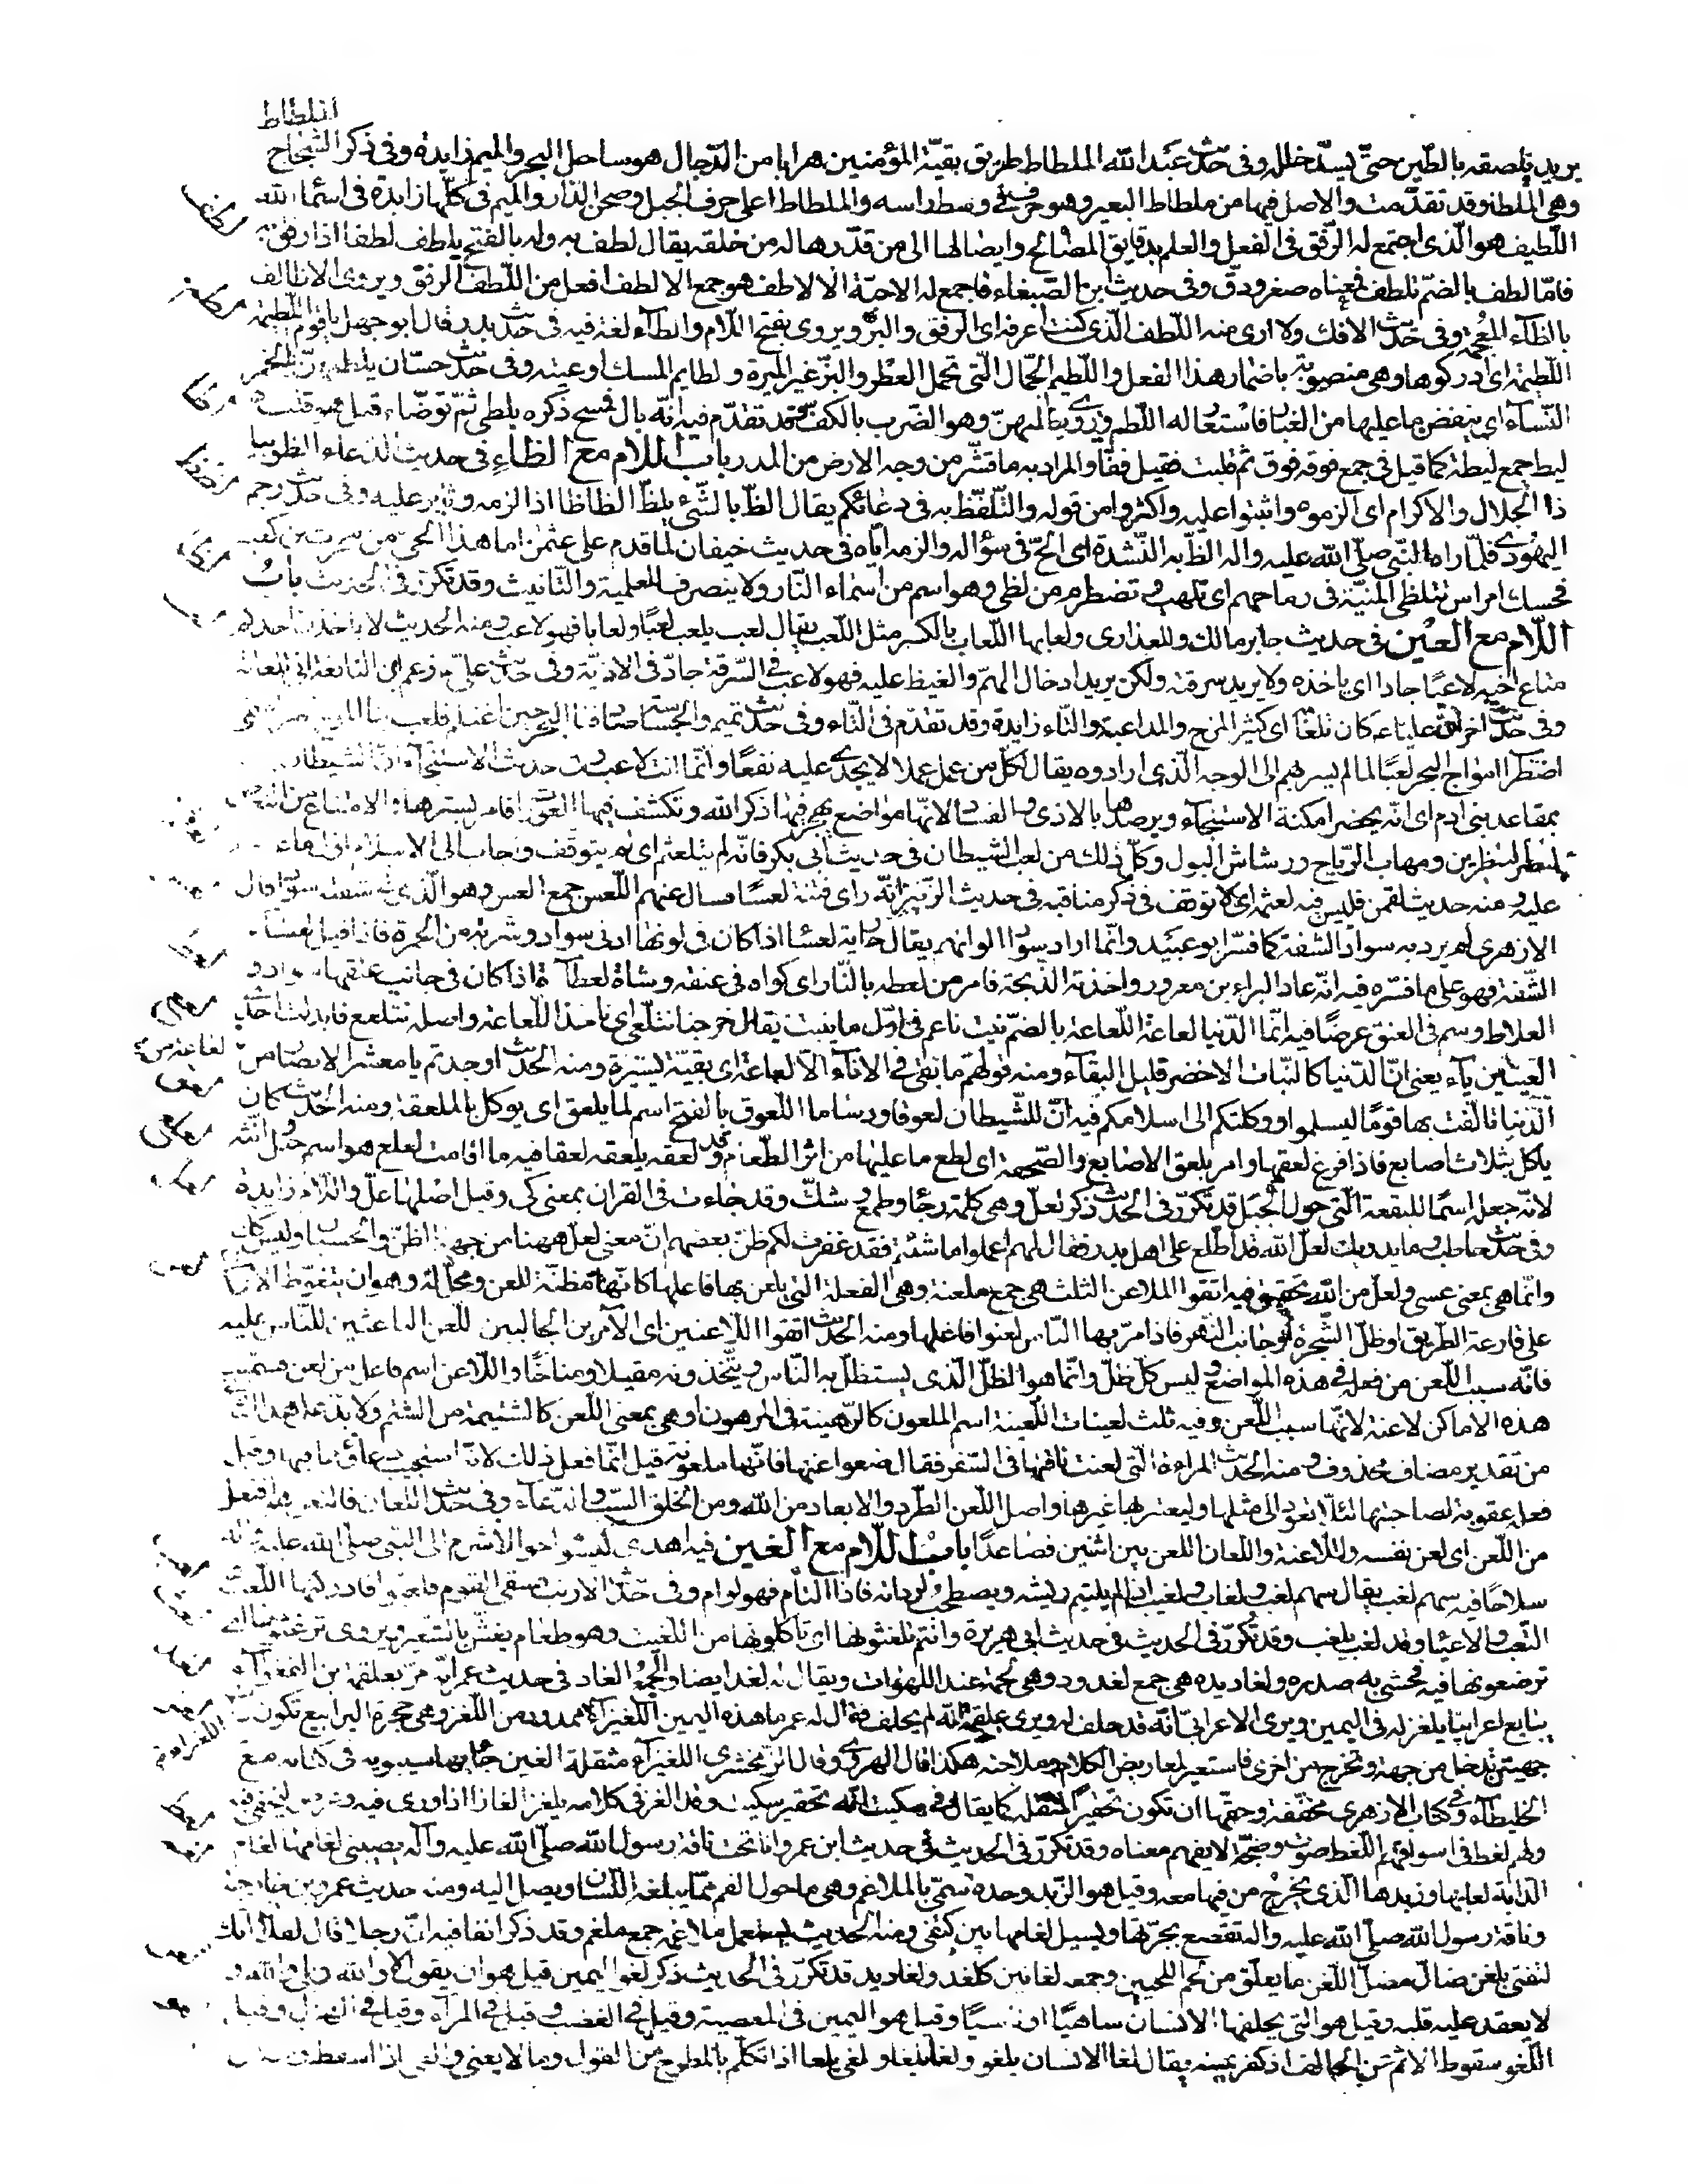 الملطاط
يريد تلصقه بالطين حتى يسد خلله وفى حديث عبد الله الملطاط طريق بقية المؤمنين هرابا من الدجال هو ساحل البحر والميم زايدة وفى ذكر الشجاج
وهى الملطا وقد تقدمت والاصل فيها من ملطاط البعير وهو حرف فى وسط راسه والملطاط اعلى حرف الجبل وصحن الدار والميم فى كلها زايدة فى اسماء الله
اللطيف هو الذى اجتمع له الرفق فى الفعل والعلم بدقايق المصالح وايصالها الى من قدرها له من خلقه يقال لطف به وله بالفتح يلطف لطفا اذا رفق به
فاما لطف بالضم يلطف فمعناه صغر ودق وفى حديث ابن الصبغاء فاجمع له الاحبة الالاطف هو جمع الالطف افعل من اللطف الرفق ويروى الاظالف
بالظاء المعجمة وفى حديث الافك ولا ارى منه اللطف الذى كنت اعرفه اى الرفق والبر ويروى بفتح اللام والطاء لغة فيه فى حديث بدر قال ابو جهل يا قوم اللطيمة
اللطيمة اى ادركوها وهى منصوبة باضمار هذا الفعل واللطيمة الجمال التى تحمل العطر والبز غير الميرة ولطايم المسك اوعيته وفى حديث حسان يلطمهن بالخمر
النساء اى ينفض ما عليها من الغبار فاستعار له اللطم وروى يطلمهن وهو الضرب بالكف وقد تقدم فيه انه بال فمسح ذكره بلطى ثم توضاء قيل هو قلب
ليط جمع ليطة كما قيل فى جمع فوقة فوق ثم قلبت فقيل فقا والمراد به ما قشر من وجه الارض من المدر باب اللام مع الظاء فى حديث الدعاء الظوا بيا
ذا الجلال والاكرام اى الزموه واثبتوا عليه واكثروا من قوله والتلفظ به فى دعائكم يقال الظ بالشىء يلظ الظاظا اذا لزمه وثابر عليه وفى حديث رجم
اليهودى فلما راه النبى صلى الله عليه واله الظ به النشدة اى الح فى سؤاله والزمه اياه فى حديث خيفان لما قدم على عثمن اما هذا الحى من بلحرث بن كعب
فحسك امراس تتلظى المنية فى رماحهم اى تلهب وتضطرم من لظى وهو اسم من اسماء النار ولا ينصرف للعلمية والتانيث وقد تكرر فى الحديث باب
اللام مع العين فى حديث جابر مالك وللعذارى ولعابها اللعاب بالكسر مثل اللعب يقال لعب يلعب لعبا ولعابا فهو لاعب ومنه الحديث لا ياخذن احدكم
متاع اخيه لاعبا جادا اى ياخذه ولا يريد سرقته ولكن يريد ادخال الهم والغيظ عليه فهو لاعب فى السرقة جاد فى الاذية وفى حديث على زعم ابن النابغة انى تلعابة
وفى حديث اخر ان عليا ع كان تلعابة اى كثير المزح والمداعبة والتاء زايدة وقد تقدم فى التاء وفى حديث تميم والجساسة صادفنا البحر حين اغتلم فلعب بنا الموج شهرا سمى
اضطراب امواج البحر لعبا لما لم يسر بهم الى الوجه الذى ارادوه يقال لكل من عمل عملا لا يجدى عليه نفعا وانما انت لاعب وفى حديث الاستنجاء ان الشيطان
بمقاعد بنى ادم اى انه يحضر امكنة الاستنجاء ويرصدها بالاذى والفساد لانها مواضع يهجر فيها ذكر الله وتكشف فيها العورات فامر بسترها والامتناع من التعرض
لنظر لناظرين ومهاب الرياح ورشاش البول وكل ذلك من لعب الشيطان فى حديث ابى بكر فانه لم يتلعثم اى لم يتوقف واجاب الى الاسلام
عليه ومنه حديث لقمن فليس فيه لعثمة اى لا توقف فى ذكر مناقبه فى حديث الزبير انه راى فتنة لعسا فسال عنهم اللعس جمع العس وهو الذى فى شفته سواد قال
الازهرى لم يرد به سواد الشفة كما فسر ابو عبيد وانما اراد سواد الوانهم يقال جارية لعساء اذا كان فى لونها ادنى سواد وشربة من الحمرة فاذا قيل لعساء
الشفة فهو على ما فسره فيه انه عاد البراء بن معرور واخذته الذبحة فامر من لعطه بالنار اى كواه فى عنقه وشاة لعطاء اذا كان فى جانب عنقها سواد و
العلاط وسم فى العنق عرضا فيه انما الدنيا لعاعة اللعاعة بالضم نبت ناعم فى اول ما ينبت يقال خرجنا نتلعى اى ناخذ اللعاعة واصله نتلعع فابدلت احدى
العينين ياء يعنى ان الدنيا كالنبات الاخضر قليل البقاء ومنه قولهم ما بقى فى الاناء الا لعاعة اى بقية يسيرة ومنه الحديث اوجدتم يا معشر الانصار من
الدنيا تالفت بها قوما ليسلموا ووكلتكم الى اسلامكم فيه ان للشيطان لعوقا ودساما اللعوق بالفتح اسم لما يلعق اى يوكل بالملعقة ومنه الحديث كان
ياكل بثلاث اصابع فاذا فرغ لعقها وامر بلعق الاصابع والصحفة اى لطع ما عليها من اثر الطعام وقد لعقه يلعقه لعقا فيه ما اقامت لعلع هو اسم جبل انثه
لانه جعله اسما للبقعة التى حول الجبل قد تكرر فى الحديث ذكر لعل وهى كلمة رجاء وطمع وشك وقد جاءت فى القران بمعنى كى وقيل اصلها عل واللام زايدة
وفى حديث حاطب وما يدريك لعل الله قد اطلع على اهل بدر فقال لهم اعملوا ما شئتم فقد غفرت لكم ظن بعضهم ان معنى لعل ههنا من جهة الظن والحسبان وليس كذلك
وانما هى بمعنى عسى ولعل من الله تحقيق فيه اتقوا الملاعن الثلث هى جمع ملعنة وهى الفعلة التى يلعن بها فاعلها كانها مظنة للعن ومحل له وهو ان يتغوط الانسان
على قارعة الطريق او ظل الشجرة او جانب النهر فاذا مر بها الناس لعنوا فاعلها ومنه الحديث اتقوا اللاعنين اى الامرين الجالبين للعن الباعثين للناس عليه
فانه سبب اللعن من فعله فى هذه المواضع وليس كل ظل وانما هو الظل الذى يستظل به الناس ويتخذونه مقيلا ومناخا واللاعن اسم فاعل من لعن فسميت
هذه الاماكن لاعنة لانها سبب اللعن وفيه ثلث لعينات اللعينة اسم الملعون كالرهينة فى المرهون او هى بمعنى اللعن كالشتيمة من الشتم ولا بد على هذا الثانى
من تقدير مضاف محذوف ومنه الحديث المراة التى لعنت ناقتها فى السفر فقال ضعوا عنها فانها ملعونة قيل انما فعل ذلك لانه استجيب دعاؤها فيها وقيل
فعله عقوبة لصاحبتها لئلا تعود الى مثلها وليعتبر بها غيرها واصل اللعن الطرد والابعاد من الله ومن الخلق السب والدعاء وفى حديث اللعان فالتعن هو افتعل
من اللعن اى لعن نفسه واللاعنة واللعان اللعن بين اثنين فصاعدا باب اللام مع الغين فيه اهدى ليسواخو الاشرم الى النبى صلى الله عليه واله
سلاحا فيه سهم لغب يقال سهم لغب ولغاب ولغيب اذا لم يلتيم ريشه ويصطحب لرداته فاذا التام فهو لوام وفى حديث الارنب فسعى القوم فلغبوا فادركتها اللغب
التعب والاعياء وقد لغب يلغب وقد تكرر فى الحديث فى حديث ابى هريرة وانتم تلغثونها اى تاكلونها من اللغيث وهو طعام يغش بالشعير ويروى ترغثونها اى
ترضعونها فيه فحشى به صدره ولغاديده هى جمع لغدود وهى لحمة عند اللهوات ويقال له لغد ايضا والجمع الغاد فى حديث عمر انه مر بعلقمة بن الفغواء
يبايع اعرابيا يلغز له فى اليمين ويرى الاعرابى انه قد حلف له ويرى علقمة انه لم يحلف فقال له عمر ما هذه اليمين اللغيزاء ممدود من اللغز وهى حجرة اليرابيع تكون ذات
جهتين تدخل من جهة وتخرج من اخرى فاستعير لمعاريض الكلام وملاحنه هكذا قال الهروى وقال الزمخشرى اللغيزاء مثقلة الغين جاء بها سيبويه فى كتابه مع
الخليطاء وفى كتاب الازهرى مخففة وحقها ان تكون تحقير المثقلة كما يقال فى سكيت انه تحقير سكيت وقد الغز فى كلامه يلغز الغازا اذا ورى فيه وعرض ليخفى فيه
ولهم لغط فى اسواقهم اللغط صوت وضجة لا يفهم معناه وقد تكرر فى الحديث فى حديث ابن عمر وانا تحت ناقة رسول الله صلى الله عليه وآله يصيبنى لغامها لغام
الدابة لعابها وزبدها الذى يخرج من فيها معه وقيل هو الزبد وحده سمى بالملاغم وهى ما حول الفم مما يبلغه اللسان ويصل اليه ومنه حديث عمرو بن خارجة
وناقة رسول الله صلى الله عليه واله تقصع بجرتها ويسيل لغامها بين كتفى ومنه الحديث يستعمل ملاغمه جمع ملغم وقد ذكر انفا فيه ان رجلا قال لفلان انك
لتفتى بلغن ضال مضل اللغن ما تعلق من لحم اللحيين وجمعه لغانين كلغد ولغاديد قد تكرر فى الحديث ذكر لغو اليمين قيل هو ان يقول لا والله وبلى والله و
لا يعقد عليه قلبه وقيل هو التى يحلفها الانسان ساهيا او ناسيا وقيل هو اليمين فى المعصية وقيل فى الغضب وقيل فى المراء وقيل فى الهزل وقيل
اللغو سقوط الاثم عن الحالف اذا كفر يمينه يقال لغا الانسان يلغو ولغا يلغا ولغى يلغا اذا تكلم بالمطروح من القول وما لا يعنى والغى اذا اسقط